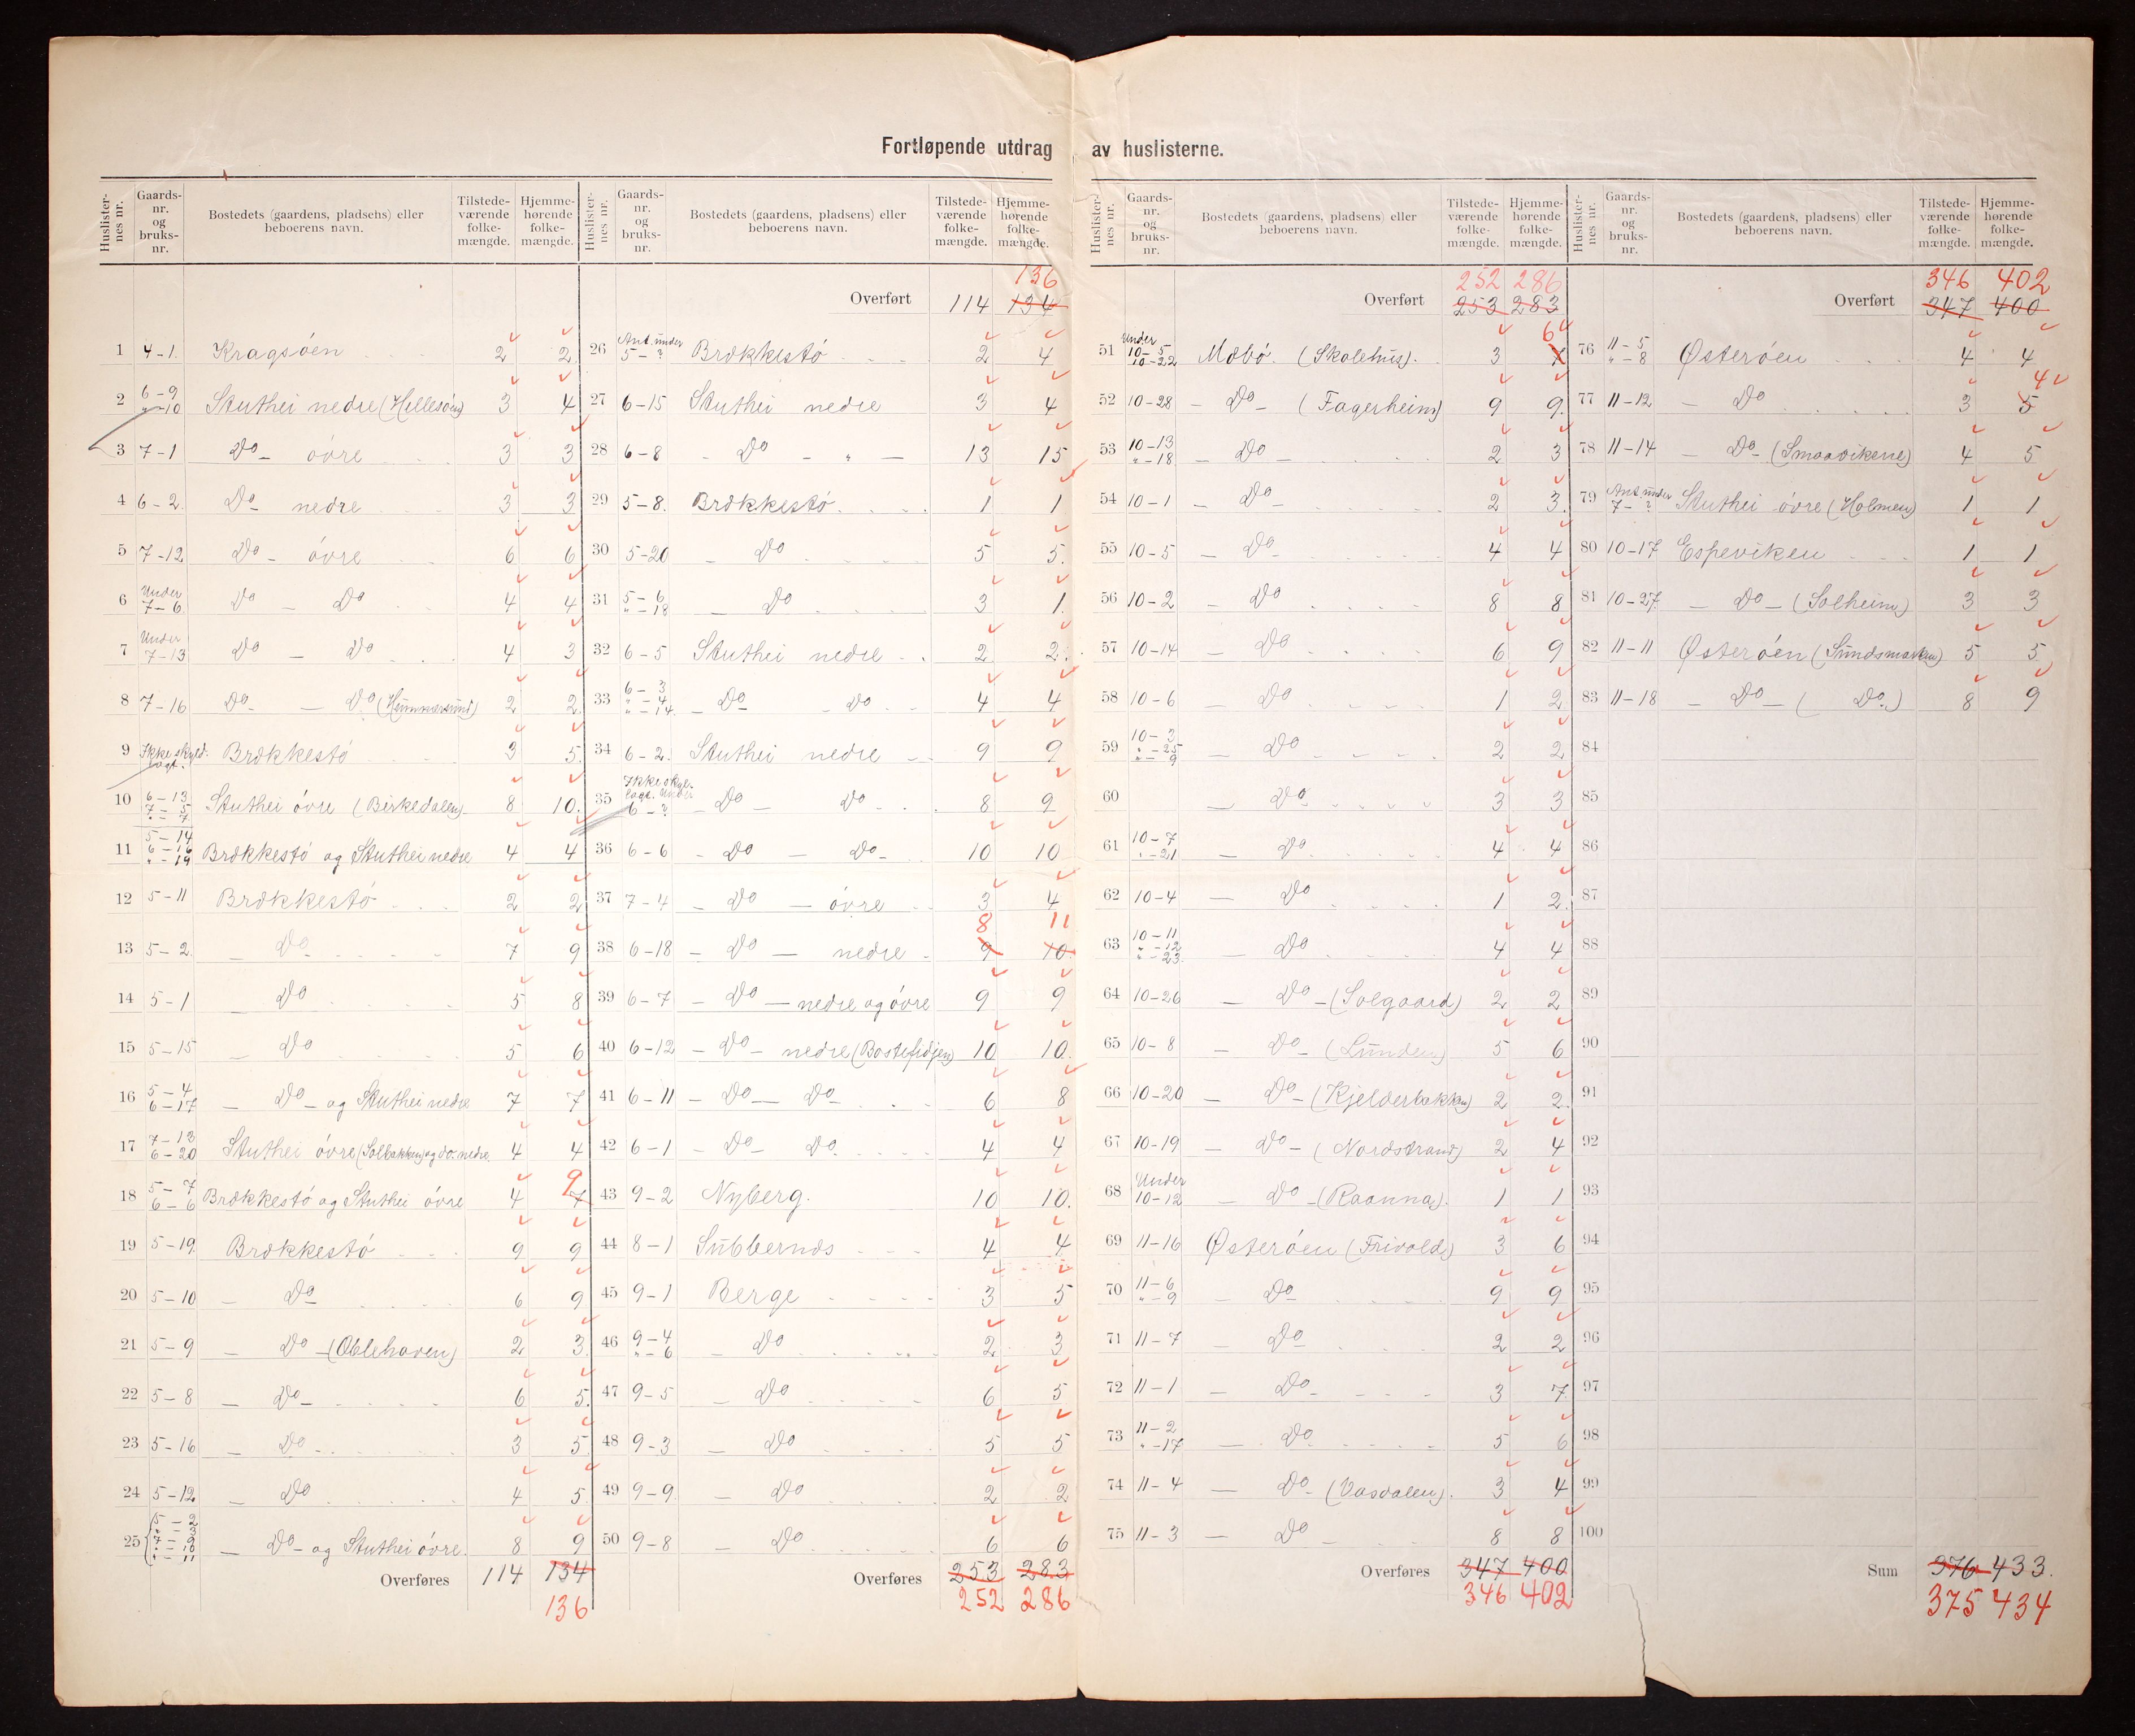 Fortløpende utdrag av huslisterne.
Huslister-nes nr. Gaards-nr. og bruks-nr. Bostedets (gaardens, pladsens) eller beboerens navn. Tilstede-værende folke-mængde. Hjemme-hørende folke-mængde.
1 4-1. Kragsöen 2 2
2 6-9 "-10 Stuthei nedre (Hellesöen) 3 4
3 7-1 Do- övre 3 3
4 6-2 Do nedre 3 3
5 7-12 Do- övre 6 6
6 Under 7-6 Do - Do 4 4
7 Under 7-13 Do - Do 4 3
8 7-16 Do- - Do (Hummersund) 2 2
9 Ikke skyld. lagt. Brækkestö 3 5
10 6-13 7-5 "-7 Stuthei övre (Birkedalen) 8 10.
11 5-14 6-16 "-19 Brækkestö og Stuthei nedre 4 4
12 5-11 Brækkestö 2 2
13 5-2 - Do 7 9
14 5-1 - Do 5 8
15 5-15 - Do 5 6
16 5-4 6-17 - Do - og Stuthei nedre 7 7
17 7-18 6-20 Stuthei övre (Solbakken) og do. nedre 4 4
18 5-7 6-6 Brækkestö og Stuthei övre 4 7 9
19 5-19 Brækkestó 9 9
20 5-10 - Do 6 9
21 5-9 - Do -(Oblehaven) 2 3
22 5-8 - Do- 6 5
23 5-16 - Do 3 5
24 5-12 - Do 4 5
25 5-2 "-3 7-9 "-10 "-11 - Do- og Stuthei övre. 8 9
Overføres 114 134
136
Huslister-nes nr. Gaards-nr. og bruks-nr. Bostedets (gaardens, pladsens) eller beboerens navn. Tilstede-værende folke-mængde. Hjemme-hørende folke-mængde.
136
Overført 114 134
26 Ant. under 5-? Brækkestö 2 4
27 6-15 Stuthei nedre 3 4
28 6-8 - Do - " - 13 15
29 5-8. Brækkestö 1 1
30 5-20 - Do 5 5.
31 5-6 "-18 - Do 3 1.
32 6-5 Stuthei nedre 2 2.
33 6-3 "-4 "-14. - Do - Do 4 4
34 6-2. Stuthei nedre 9 9
35 Ikke skyl. lagt. Under 6-? - Do - Do 8 9
36 6-6 - Do - Do- 10 10
37 7-4 - Do - övre 3 4
8 11
38 6-18 - Do - nedre 9 10.
39 6-7 - Do - nedre og övre 9 9
40 6-12 - Do - nedre (Bostefidjen) 10 10.
41 6-11 - Do - Do- 6 8
42 6-1 - Do- Do 4 4
43 9-2 Nyberg. 10 10.
44 8-1 Sübbernes 4 4
45 9-1 Berge 3 5
46 9-4 "-6 - Do 2 3
47 9-5 - Do 6 5
48 9-3 - Do 5 5
49 9-9 - Do 2 2
50 9-8 - Do 6 6
Overføres 253 283
252 286
Huslister-nes nr. Gaards-nr. og bruks-nr. Bostedets (gaardens, pladsens) eller beboerens navn. Tilstede-værende folke-mængde. Hjemme-hørende folke-mængde.
252 286
Overført 253 283
51 Under 10-5 10-22 Mæbö. (Skolehüs). 3 6
52 10-28 - Do - (Fagerheim) 9 9.
53 10-13 "-18 - Do - 2 3
54 10-1 - Do - 2 3.
55 10-5 - Do - 4 4
56 10-2 - Do 8 8
57 10-14 - Do 6 9
58 10-6 - Do 1 2
59 10-3 "-25 "-9 - Do 2 2
60 - Do 3 3
61 10-7 "-21 - Do 4 4
62 10-4 - Do 1 2
63 10-11 "-12 "-23. - Do 4 4
64 10-26 - Do -(Solgaard) 2 2
65 10-8 - Do - (Lünden) 5 6
66 10-20 - Do - (Kjelderbakken) 2 2.
67 10-19 - Do - (Nordstrand) 2 4
68 Under 10-12 - Do -(Raanna). 1 1
69 11-16 Østeröen (Frivold) 3 6
70 11-6 "-9 - Do 9 9
71 11-7 - Do 2 2
72 11-1 - Do- 3 7
73 11-2 "-17 - Do 5 6
74 11-4 - Do- (Vasdalen). 3 4
75 11-3 - Do 8 8
Overføres 347 400
346 402
Huslister-nes nr. Gaards-nr. og bruks-nr. Bostedets (gaardens, pladsens) eller beboerens navn. Tilstede-værende folke-mængde. Hjemme-hørende folke-mængde.
346 402
Overført 347 400
76 11-5 "-8 Østeröen 4 4
77 11-12 - Do 3 5 4
78 11-14 - Do- (Smaavikene) 4 5
79 Ant. under 7-? Stuthei övre (Holmen) 1 1
80 10-17 Espeviken 1 1
81 10-27. - Do - (Solheim) 3 3
82 11-11 Østeröen (Sündsmarken) 5 5
83 11-18 - Do - ( Do.) 8 9
84
85
86
87
88
89
90
91
92
93
94
95
96
97
98
99
100
Sum 376 433.
375 434